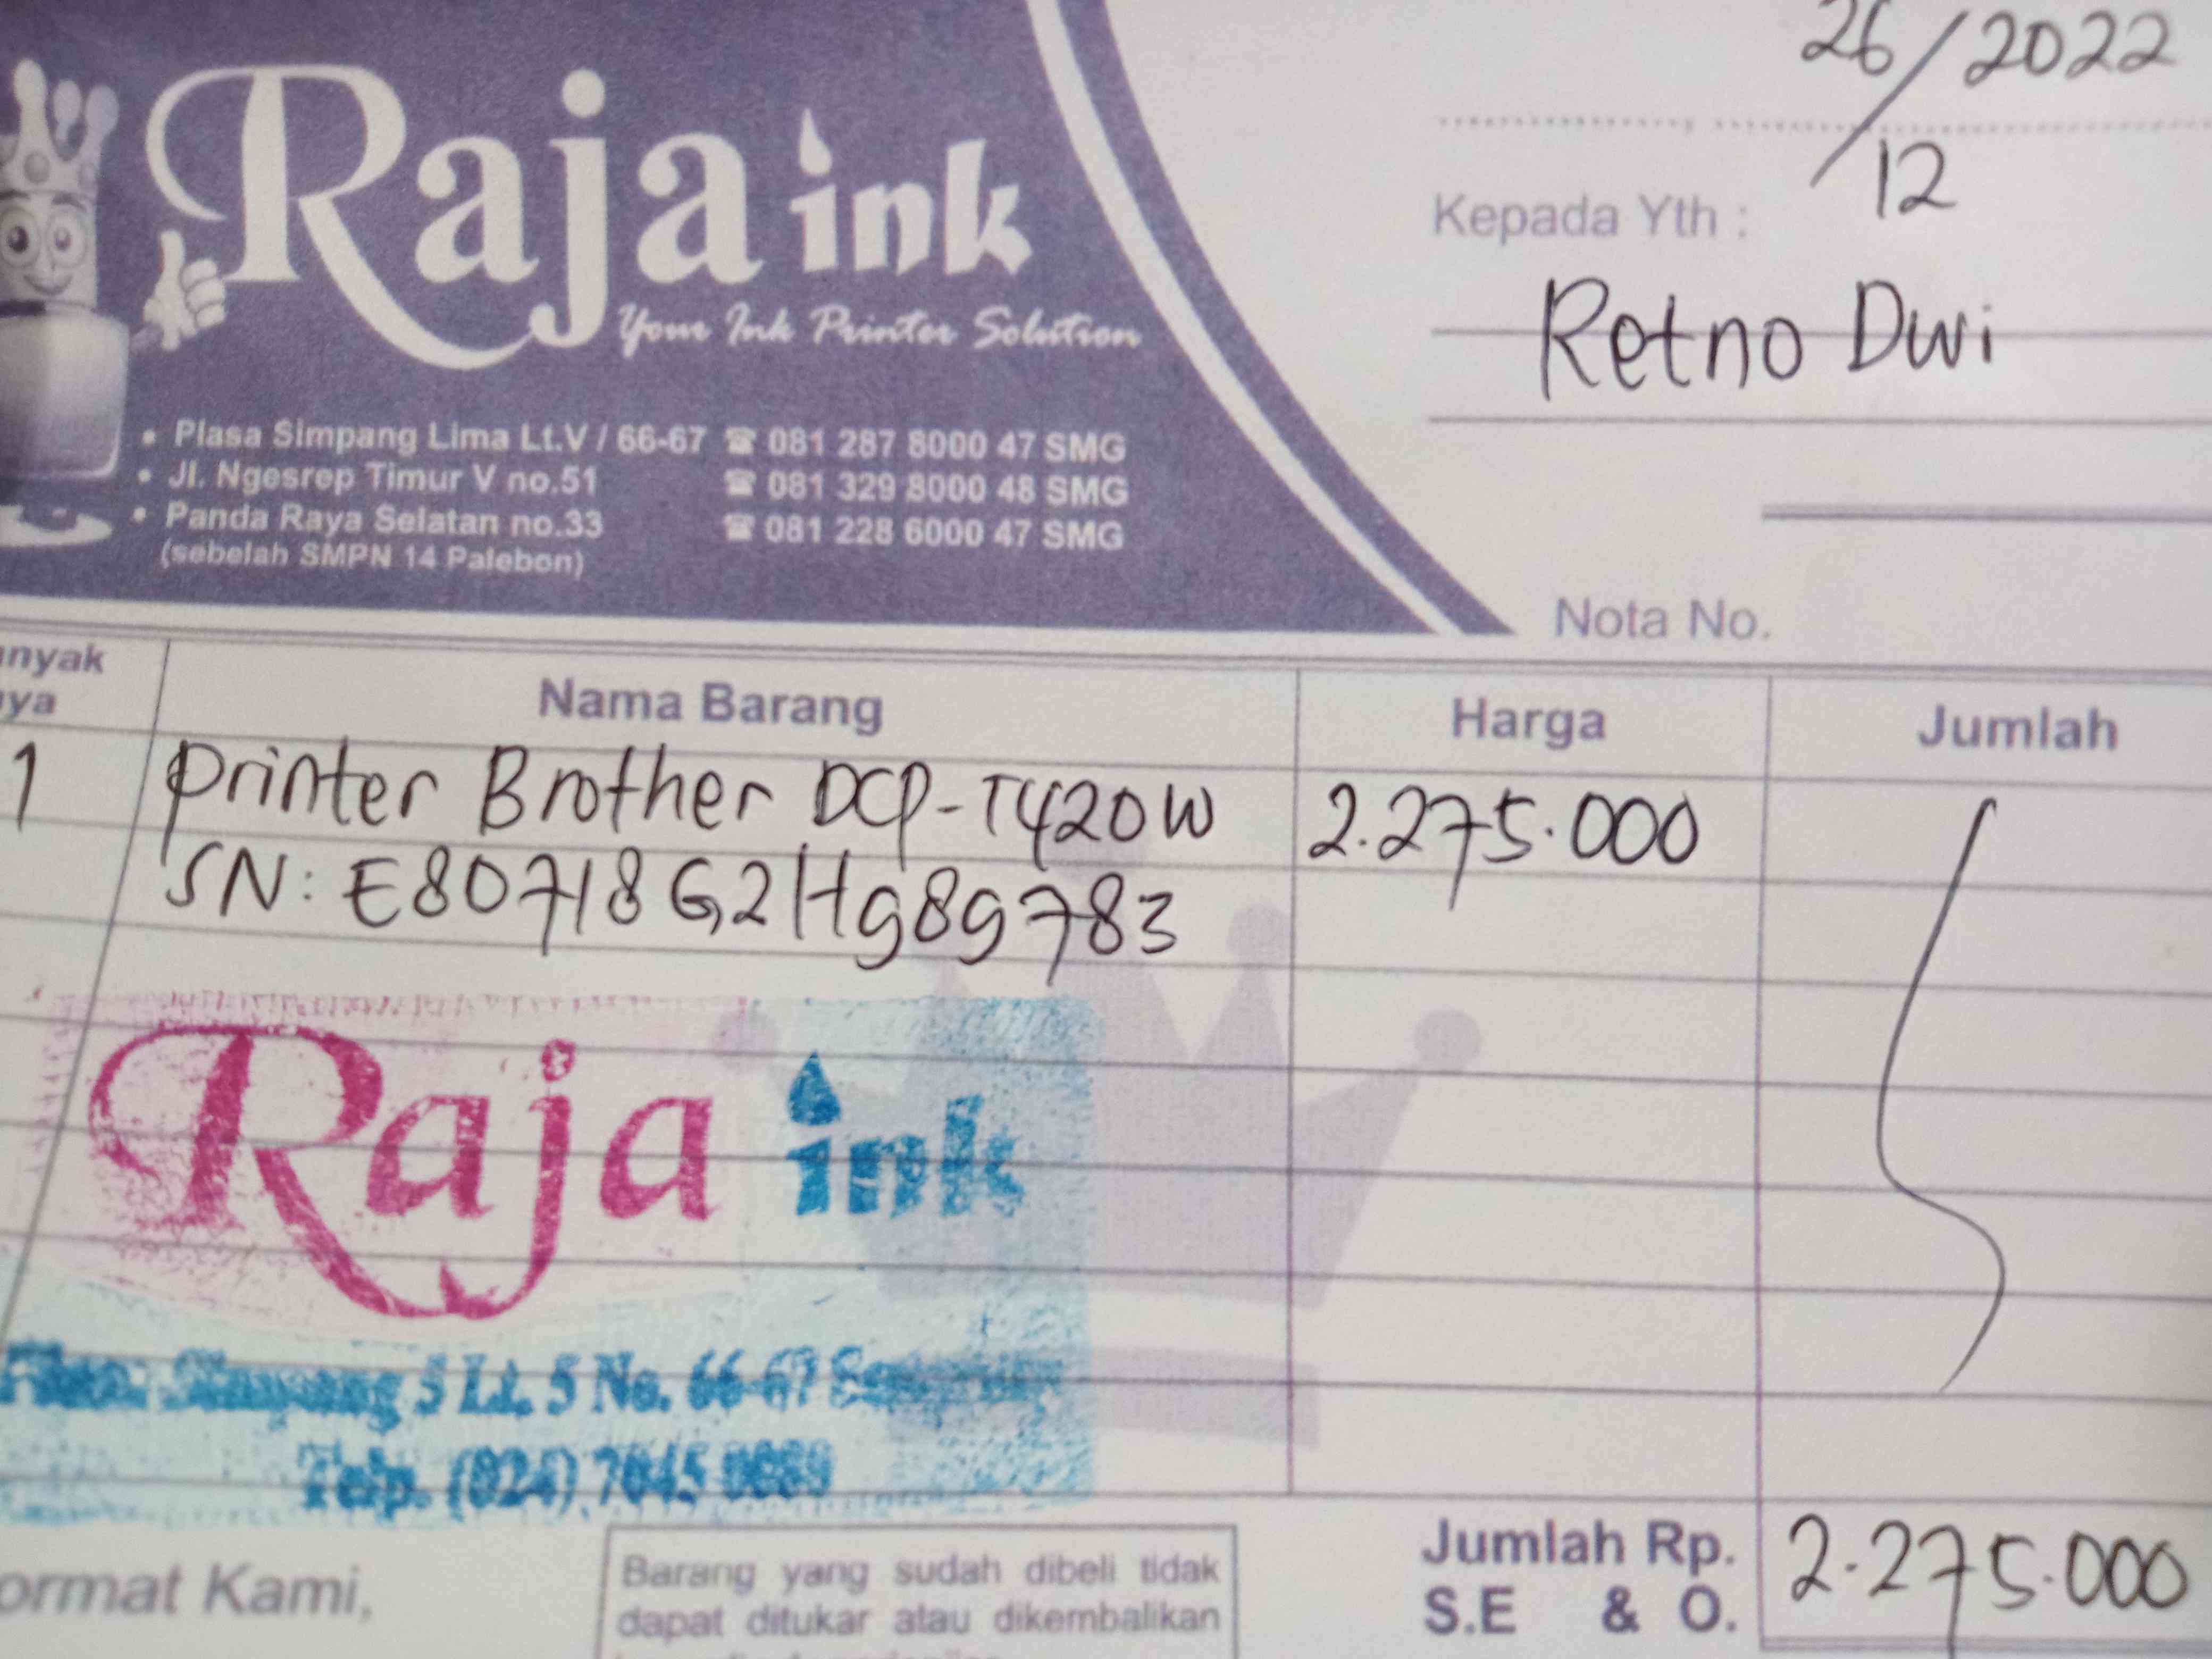 26/12 2022
Raja ink
Your Ink Printer Solution
Kepada Yth :
Retno Dwi
• Plasa Simpang Lima Lt.V / 66-67 ☎ 081 287 8000 47 SMG
• Jl. Ngesrep Timur V no.51 ☎ 081 329 8000 48 SMG
• Panda Raya Selatan no.33 ☎ 081 228 6000 47 SMG
(sebelah SMPN 14 Palebon)
Nota No.
anyak
nya
Nama Barang Harga Jumlah
1 Printer Brother DCP-T420W 2.275.000
SN: E80718G2Hg89783
Raja ink
Simpang 5 Lt. 5 No. 66-67
Telp. (024) 7645
ormat Kami,
Barang yang sudah dibeli tidak
dapat ditukar atau dikembalikan
Jumlah Rp. 2.275.000
S.E & O.